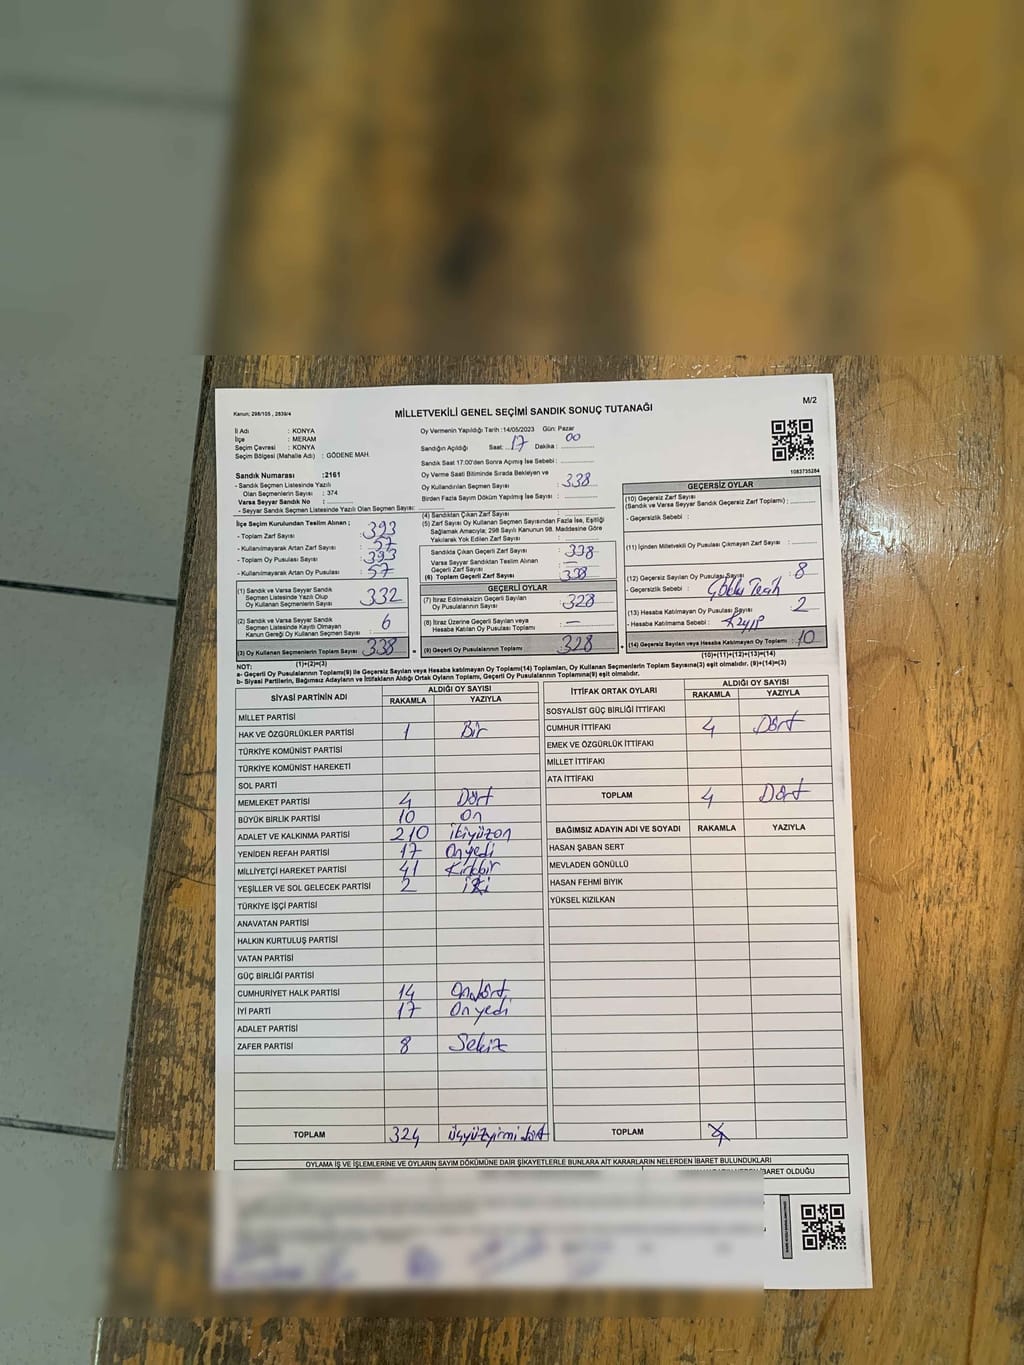 Kanun; 298/105 , 2839/4
MİLLETVEKİLİ GENEL SEÇİMİ SANDIK SONUÇ TUTANAĞI
M/2
İl Adı : KONYA
İlçe : MERAM
Seçim Çevresi : KONYA
Seçim Bölgesi (Mahalle Adı) : GÖDENE MAH.
Oy Vermenin Yapıldığı Tarih :14/05/2023 Gün: Pazar
Sandığın Açıldığı Saat: 17 Dakika : 00
Sandık Saat 17:00'den Sonra Açımış İse Sebebi :
Oy Verme Saati Bitiminde Sırada Bekleyen ve
Oy Kullandırılan Seçmen Sayısı : 338
Birden Fazla Sayım Döküm Yapılmış İse Sayısı :
1083735284
Sandık Numarası :2161
- Sandık Seçmen Listesinde Yazılı
Olan Seçmenlerin Sayısı : 374
Varsa Seyyar Sandık No :
- Seyyar Sandık Seçmen Listesinde Yazılı Olan Seçmen Sayısı:
İlçe Seçim Kurulundan Teslim Alınan ;
- Toplam Zarf Sayısı : 393
- Kullanılmayarak Artan Zarf Sayısı : 57
- Toplam Oy Pusulası Sayısı : 393
- Kullanılmayarak Artan Oy Pusulası : 57
(1) Sandık ve Varsa Seyyar Sandık
Seçmen Listesinde Yazılı Olup
Oy Kullanan Seçmenlerin Sayısı : 332
(2) Sandık ve Varsa Seyyar Sandık
Seçmen Listesinde Kayıtlı Olmayan
Kanun Gereği Oy Kullanan Seçmen Sayısı : 6
(3) Oy Kullanan Seçmenlerin Toplam Sayısı : 338
(1)+(2)=(3)
(4) Sandıktan Çıkan Zarf Sayısı
(5) Zarf Sayısı Oy Kullanan Seçmen Sayısından Fazla İse, Eşitliği
Sağlamak Amacıyla; 298 Sayılı Kanunun 98. Maddesine Göre
Yakılarak Yok Edilen Zarf Sayısı :
Sandıkla Çıkan Geçerli Zarf Sayısı : 338
Varsa Seyyar Sandıktan Teslim Alınan
Geçerli Zarf Sayısı : —
(6) Toplam Geçerli Zarf Sayısı : 338
GEÇERLİ OYLAR
(7) İtiraz Edilmeksizin Geçerli Sayılan
Oy Pusulalarının Sayısı : 328
(8) İtiraz Üzerine Geçerli Sayılan veya
Hesaba Katılan Oy Pusulası Toplamı : —
(9) Geçerli Oy Pusulalarının Toplamı : 328
GEÇERSİZ OYLAR
(10) Geçersiz Zarf Sayısı
(Sandık ve Varsa Seyyar Sandık Geçersiz Zarf Toplamı) :
- Geçersizlik Sebebi :
(11) İçinden Milletvekili Oy Pusulası Çıkmayan Zarf Sayısı :
(12) Geçersiz Sayılan Oy Pusulası Sayısı : 8
- Geçersizlik Sebebi :
(13) Hesaba Katılmayan Oy Pusulası Sayısı : 2
- Hesaba Katılmama Sebebi : Kayıp
(14) Geçersiz Sayılan veya Hesaba Katılmayan Oy Toplamı : 10
(10)+(11)+(12)+(13)=(14)
NOT:
a- Geçerli Oy Pusulaları Toplamı(9) ile Geçersiz Sayılan veya Hesaba katılmayan Oy Toplamı(14) Toplamları, Oy Kullanan Seçmenlerin Toplam Sayısına(3) eşit olmalıdır. (9)+(14)=(3)
b- Siyasi Partilerin, Bağımsız Adayların ve İttifakların Aldığı Ortak Oyların Toplamı, Geçerli Oy Pusulalarının Toplamına(9) eşit olmalıdır.
SİYASİ PARTİNİN ADI ALDIĞI OY SAYISI
RAKAMLA YAZIYLA
MİLLET PARTİSİ
HAK VE ÖZGÜRLÜKLER PARTİSİ 1 Bir
TÜRKİYE KOMÜNİST PARTİSİ
TÜRKİYE KOMÜNİST HAREKETİ
SOL PARTİ
MEMLEKET PARTİSİ 4 Dört
BÜYÜK BİRLİK PARTİSİ 10 On
ADALET VE KALKINMA PARTİSİ 210 ikiyüzon
YENİDEN REFAH PARTİSİ 17 Onyedi
MİLLİYETÇİ HAREKET PARTİSİ 41 Kırkbir
YEŞİLLER VE SOL GELECEK PARTİSİ 2 iki
TÜRKİYE İŞÇİ PARTİSİ
ANAVATAN PARTİSİ
HALKIN KURTULUŞ PARTİSİ
VATAN PARTİSİ
GÜÇ BİRLİĞİ PARTİSİ
CUMHURİYET HALK PARTİSİ 14 Ondört
İYİ PARTİ 17 Onyedi
ADALET PARTİSİ
ZAFER PARTİSİ 8 Sekiz
TOPLAM 324 üçyüzyirmidört
İTTİFAK ORTAK OYLARI ALDIĞI OY SAYISI
RAKAMLA YAZIYLA
SOSYALİST GÜÇ BİRLİĞİ İTTİFAKI
CUMHUR İTTİFAKI 4 Dört
EMEK VE ÖZGÜRLÜK İTTİFAKI
MİLLET İTTİFAKI
ATA İTTİFAKI
TOPLAM 4 Dört
BAĞIMSIZ ADAYIN ADI VE SOYADI RAKAMLA YAZIYLA
HASAN ŞABAN SERT
MEVLADEN GÖNÜLLÜ
HASAN FEHMİ BIYIK
YÜKSEL KIZILKAN
TOPLAM
OYLAMA İŞ VE İŞLEMLERİNE VE OYLARIN SAYIM DÖKÜMÜNE DAİR ŞİKAYETLERLE BUNLARA AİT KARARLARIN NELERDEN İBARET BULUNDUKLARI
İBARET OLDUĞU